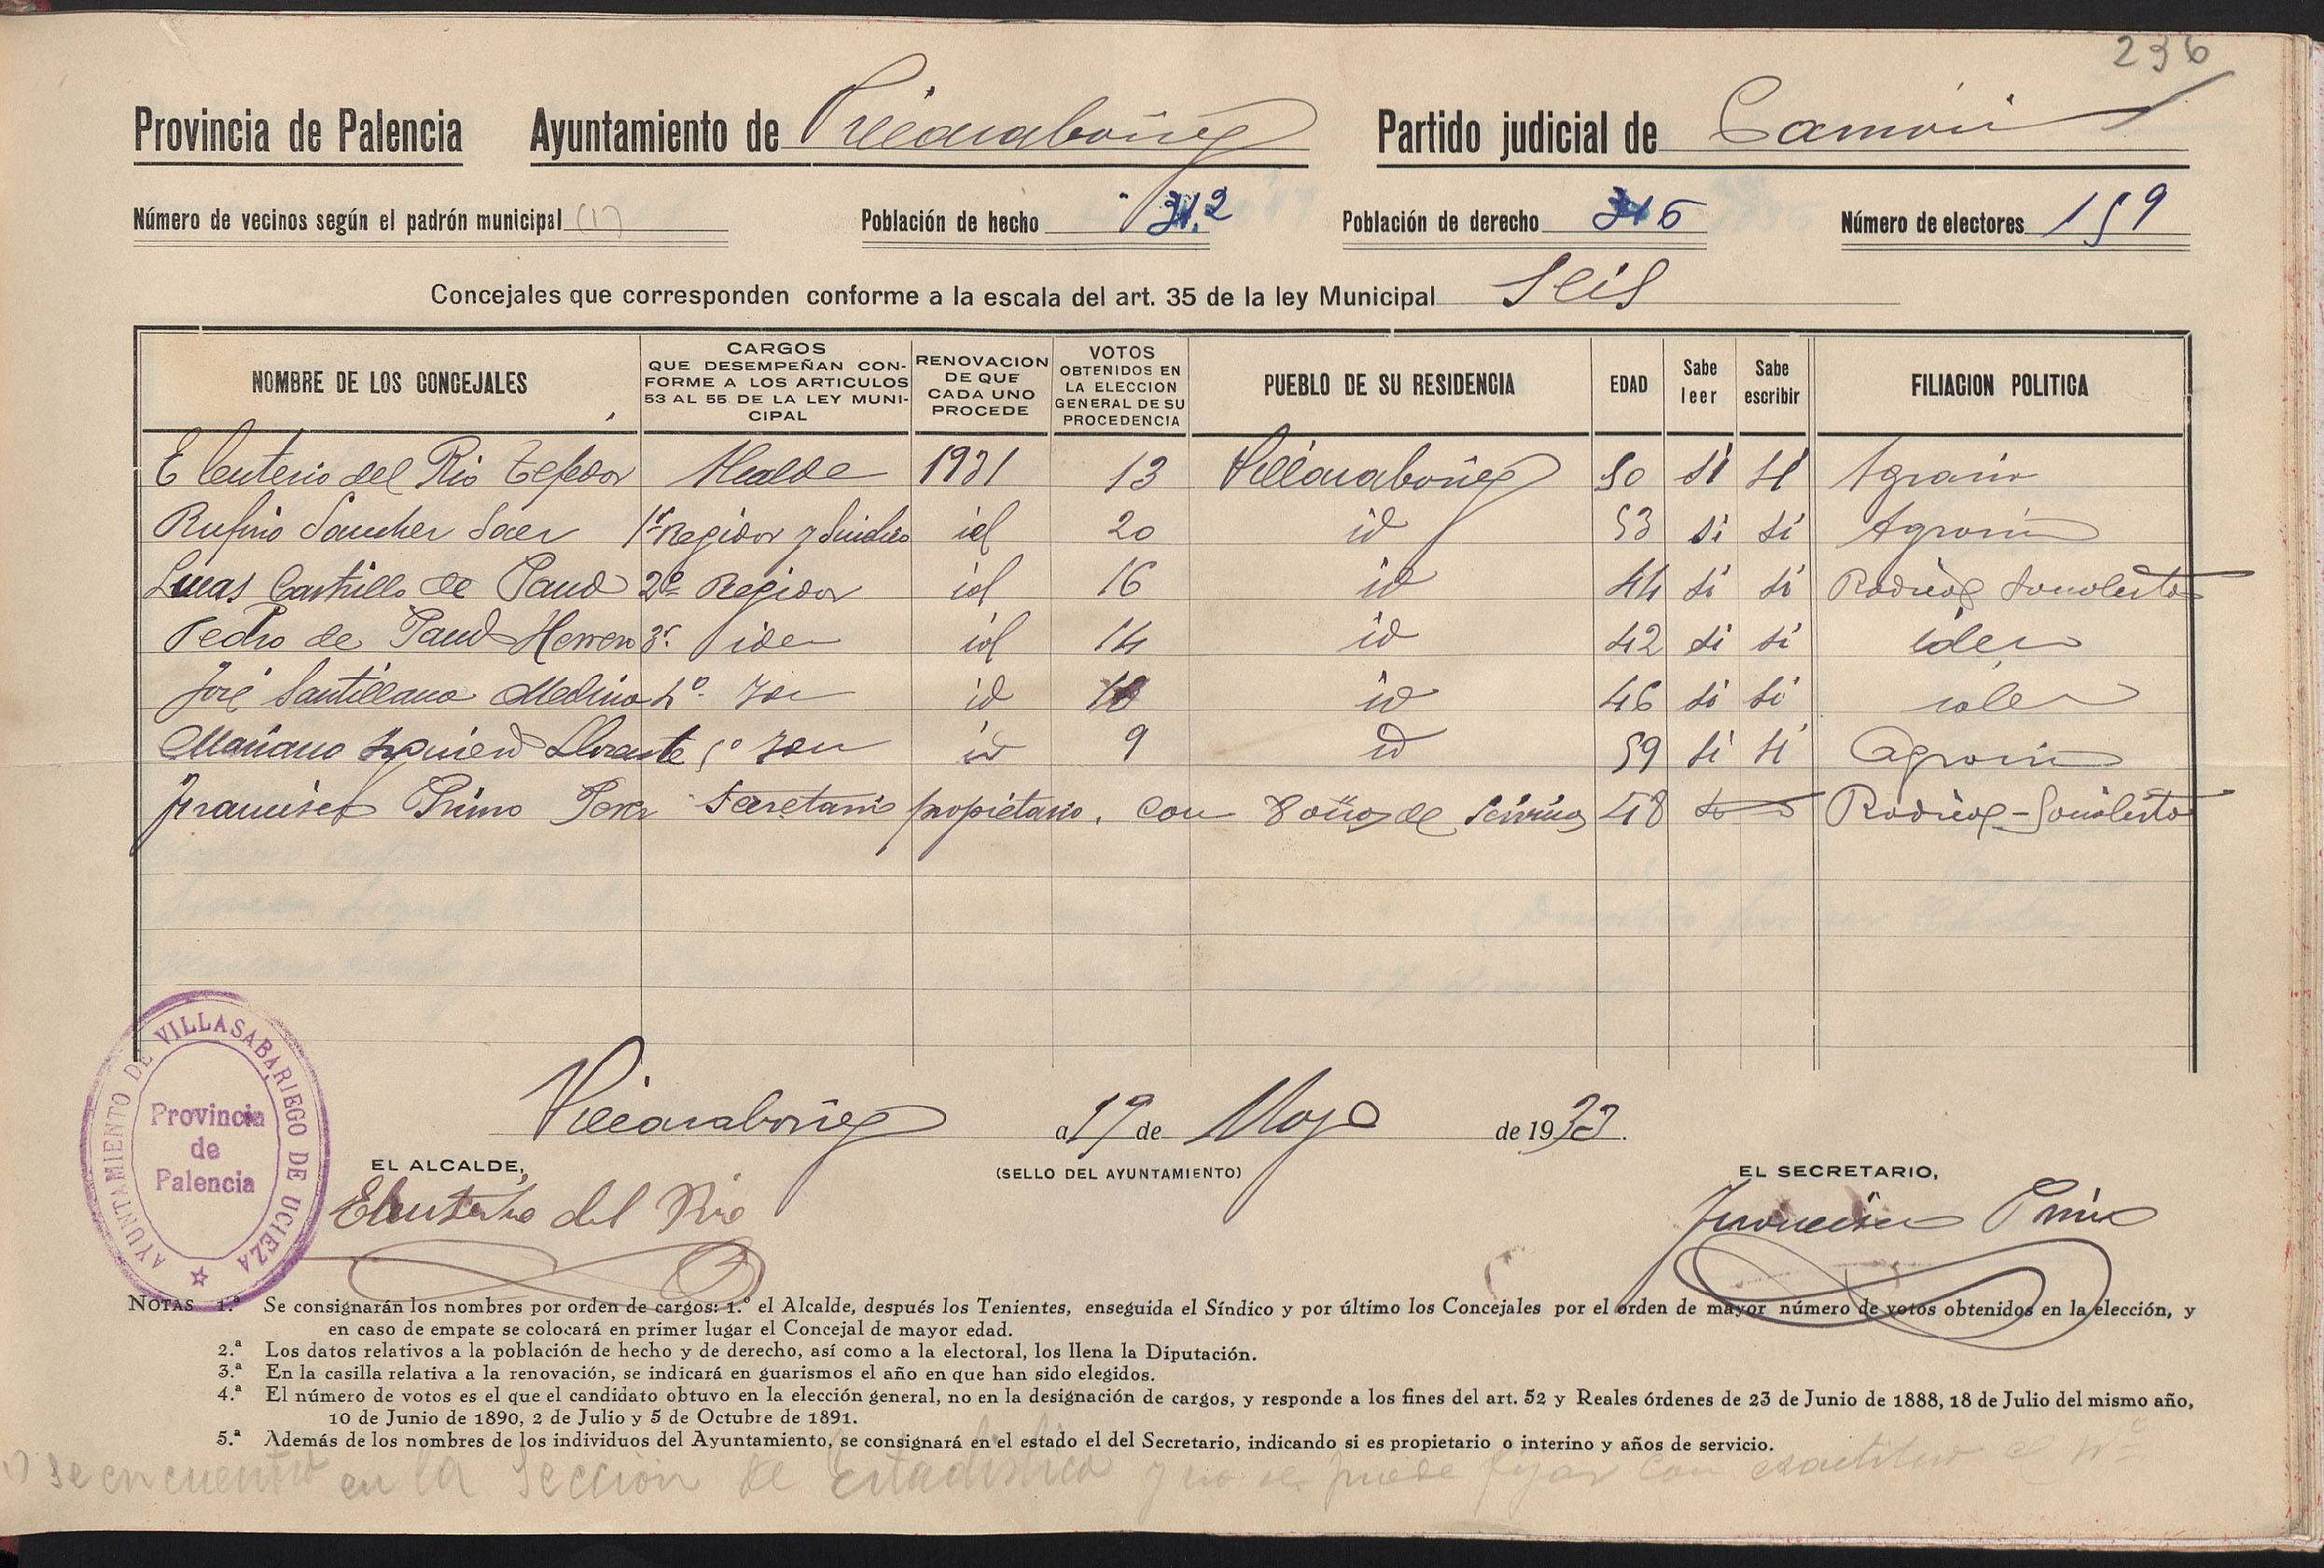 236
Provincia de Palencia Ayuntamiento de Villasabariego Partido judicial de Carrión
Número de vecinos según el padrón municipal (1) Población de hecho 312 Población de derecho 316 Número de electores 159
Concejales que corresponden conforme a la escala del art. 35 de la ley Municipal Seis
NOMBRE DE LOS CONCEJALES CARGOS QUE DESEMPEÑAN CONFORME A LOS ARTICULOS 53 AL 55 DE LA LEY MUNICIPAL RENOVACION DE QUE CADA UNO PROCEDE VOTOS OBTENIDOS EN LA ELECCION GENERAL DE SU PROCEDENCIA PUEBLO DE SU RESIDENCIA EDAD Sabe leer Sabe escribir FILIACION POLITICA
Eleuterio del Rio Tejedor Alcalde 1931 13 Villasabariego 50 si si Agrario
Rufino Sanchez Saez 1r Regidor y Sindico id 20 id 53 si si Agrario
Lucas Castrillo de Pand 2º Regidor id 16 id 44 si si Radical Socialista
Pedro de Pand Herrero 3r. iden id 14 id 42 si si iden
José Santillana Medina 4º. Iden id 10 id 46 si si iden
Mariano Izquierdo Llorente 5º Iden id 9 id 59 si si Agrario
Francisco Primo Perez Secretario propietario, con 8 años de servicios 48 Radical-Socialista
AYUNTAMIENTO DE VILLASABARIEGO DE UCIEZA
Provincia
de
Palencia
Villasabariego a 19 de Mayo de 1933.
EL ALCALDE, (SELLO DEL AYUNTAMIENTO) EL SECRETARIO,
Eleuterio del Rio Francisco Primo
NOTAS 1.ª Se consignarán los nombres por orden de cargos: 1.º el Alcalde, después los Tenientes, enseguida el Síndico y por último los Concejales por el orden de mayor número de votos obtenidos en la elección, y
en caso de empate se colocará en primer lugar el Concejal de mayor edad.
2.ª Los datos relativos a la población de hecho y de derecho, así como a la electoral, los llena la Diputación.
3.ª En la casilla relativa a la renovación, se indicará en guarismos el año en que han sido elegidos.
4.ª El número de votos es el que el candidato obtuvo en la elección general, no en la designación de cargos, y responde a los fines del art. 52 y Reales órdenes de 23 de Junio de 1888, 18 de Julio del mismo año,
10 de Junio de 1890, 2 de Julio y 5 de Octubre de 1891.
5.ª Además de los nombres de los individuos del Ayuntamiento, se consignará en el estado el del Secretario, indicando si es propietario o interino y años de servicio.
1) se encuentra en la Sección de Estadistica y no se puede fijar con exactitud el nº